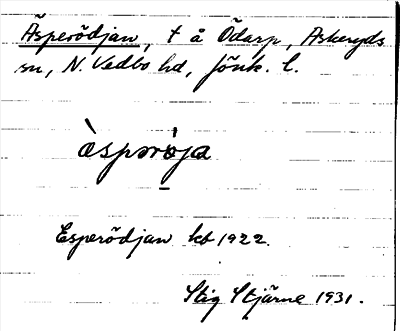 Äsperödjan, t å Ödarp, Askeryds
sn, N. Vedbo hd, Jönk. l.
àspərø̀ja
Esperödjan kb 1922.
Stig Stjärne 1931.